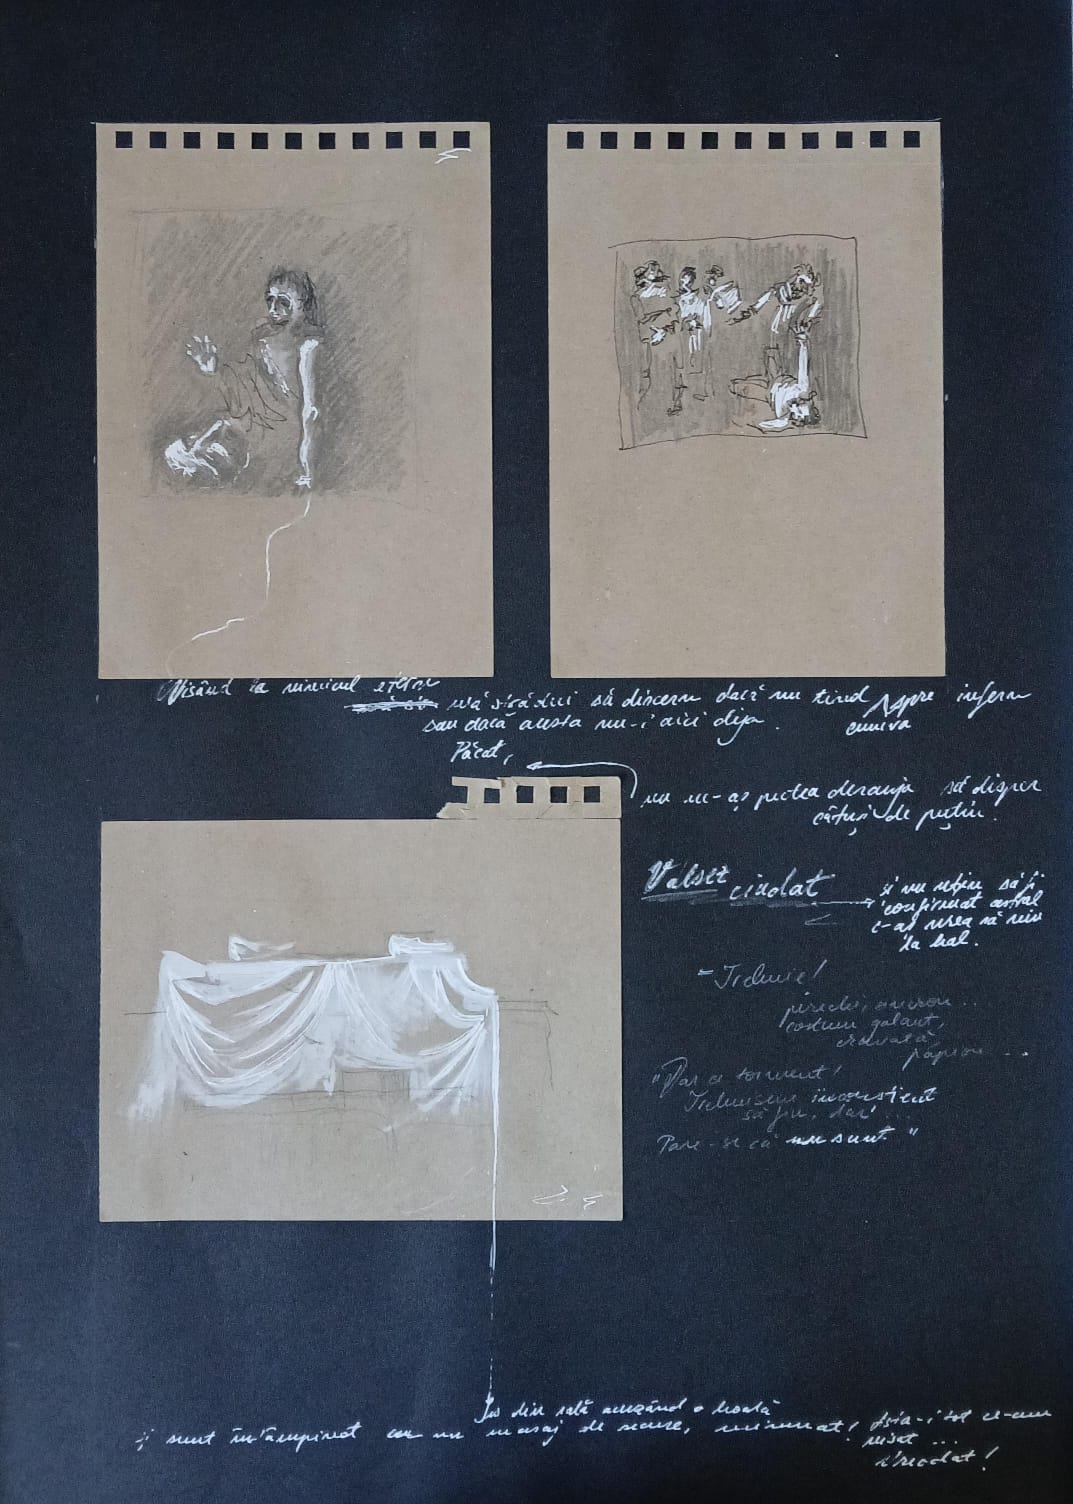 Visând la
mă strădui să discern dacă nu tind spre infern
cumva
sau dacă acesta nu-i aici deja.
Păcat,
nu m-aș putea deranja să disper
câtuși de puțin.
Valset ciudat
și nu rețin să fi
confirmat astral
c-aș vrea să vin
la bal.
"Trebuie!
costum galant,
cravată,
papion ...
"Dar ce torment!
Trebuisem inconstient
să fiu, dar ...
Pare-se că nu sunt."
Ies din sală acuzând o boală
și sunt întâmpinat cu un mesaj de scuze, minunat! Asta-i tot ce-am
visat ...